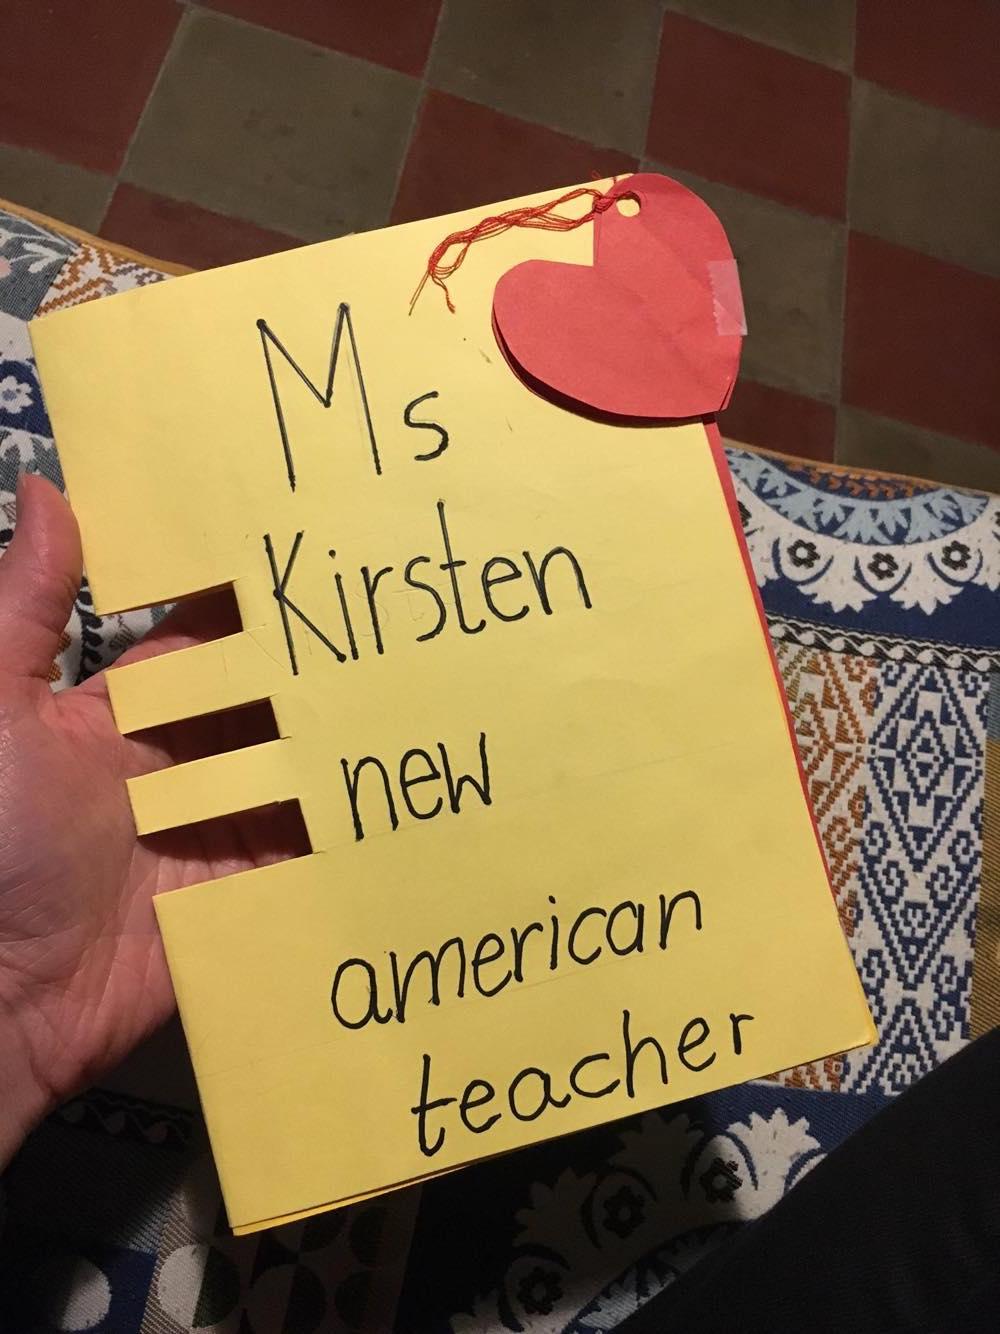 Ms
Kirsten
new
american
teacher